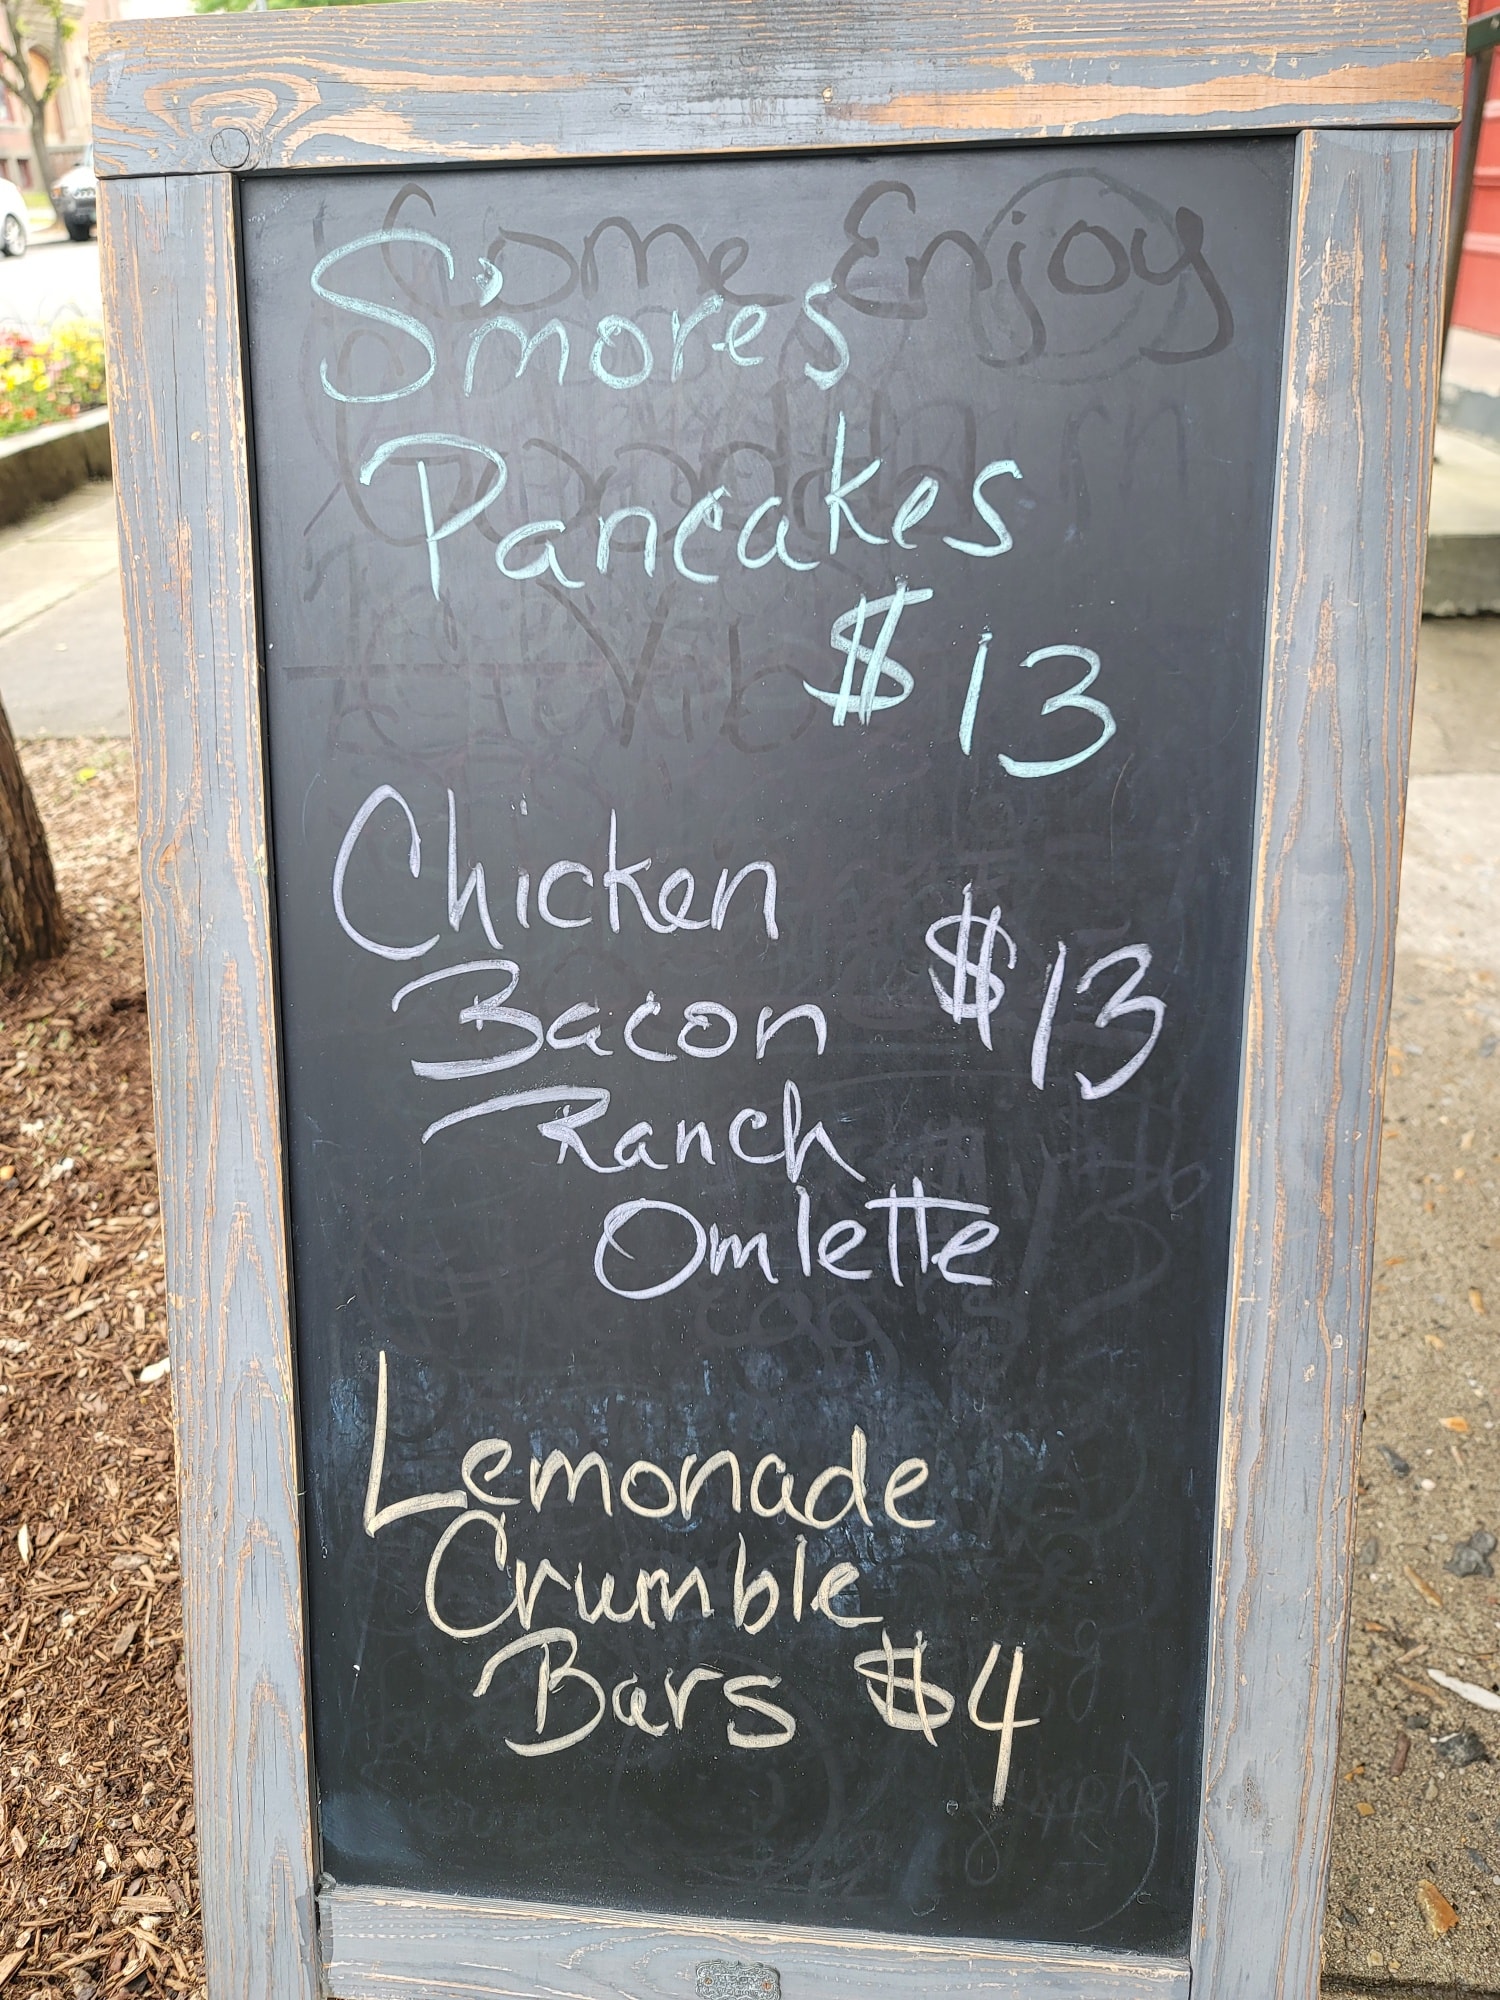 Come Enjoy
S'mores
Pancakes
$13
Chicken
Bacon $13
Ranch
Omlette
eggs
Lemonade
Crumble
Bars $4